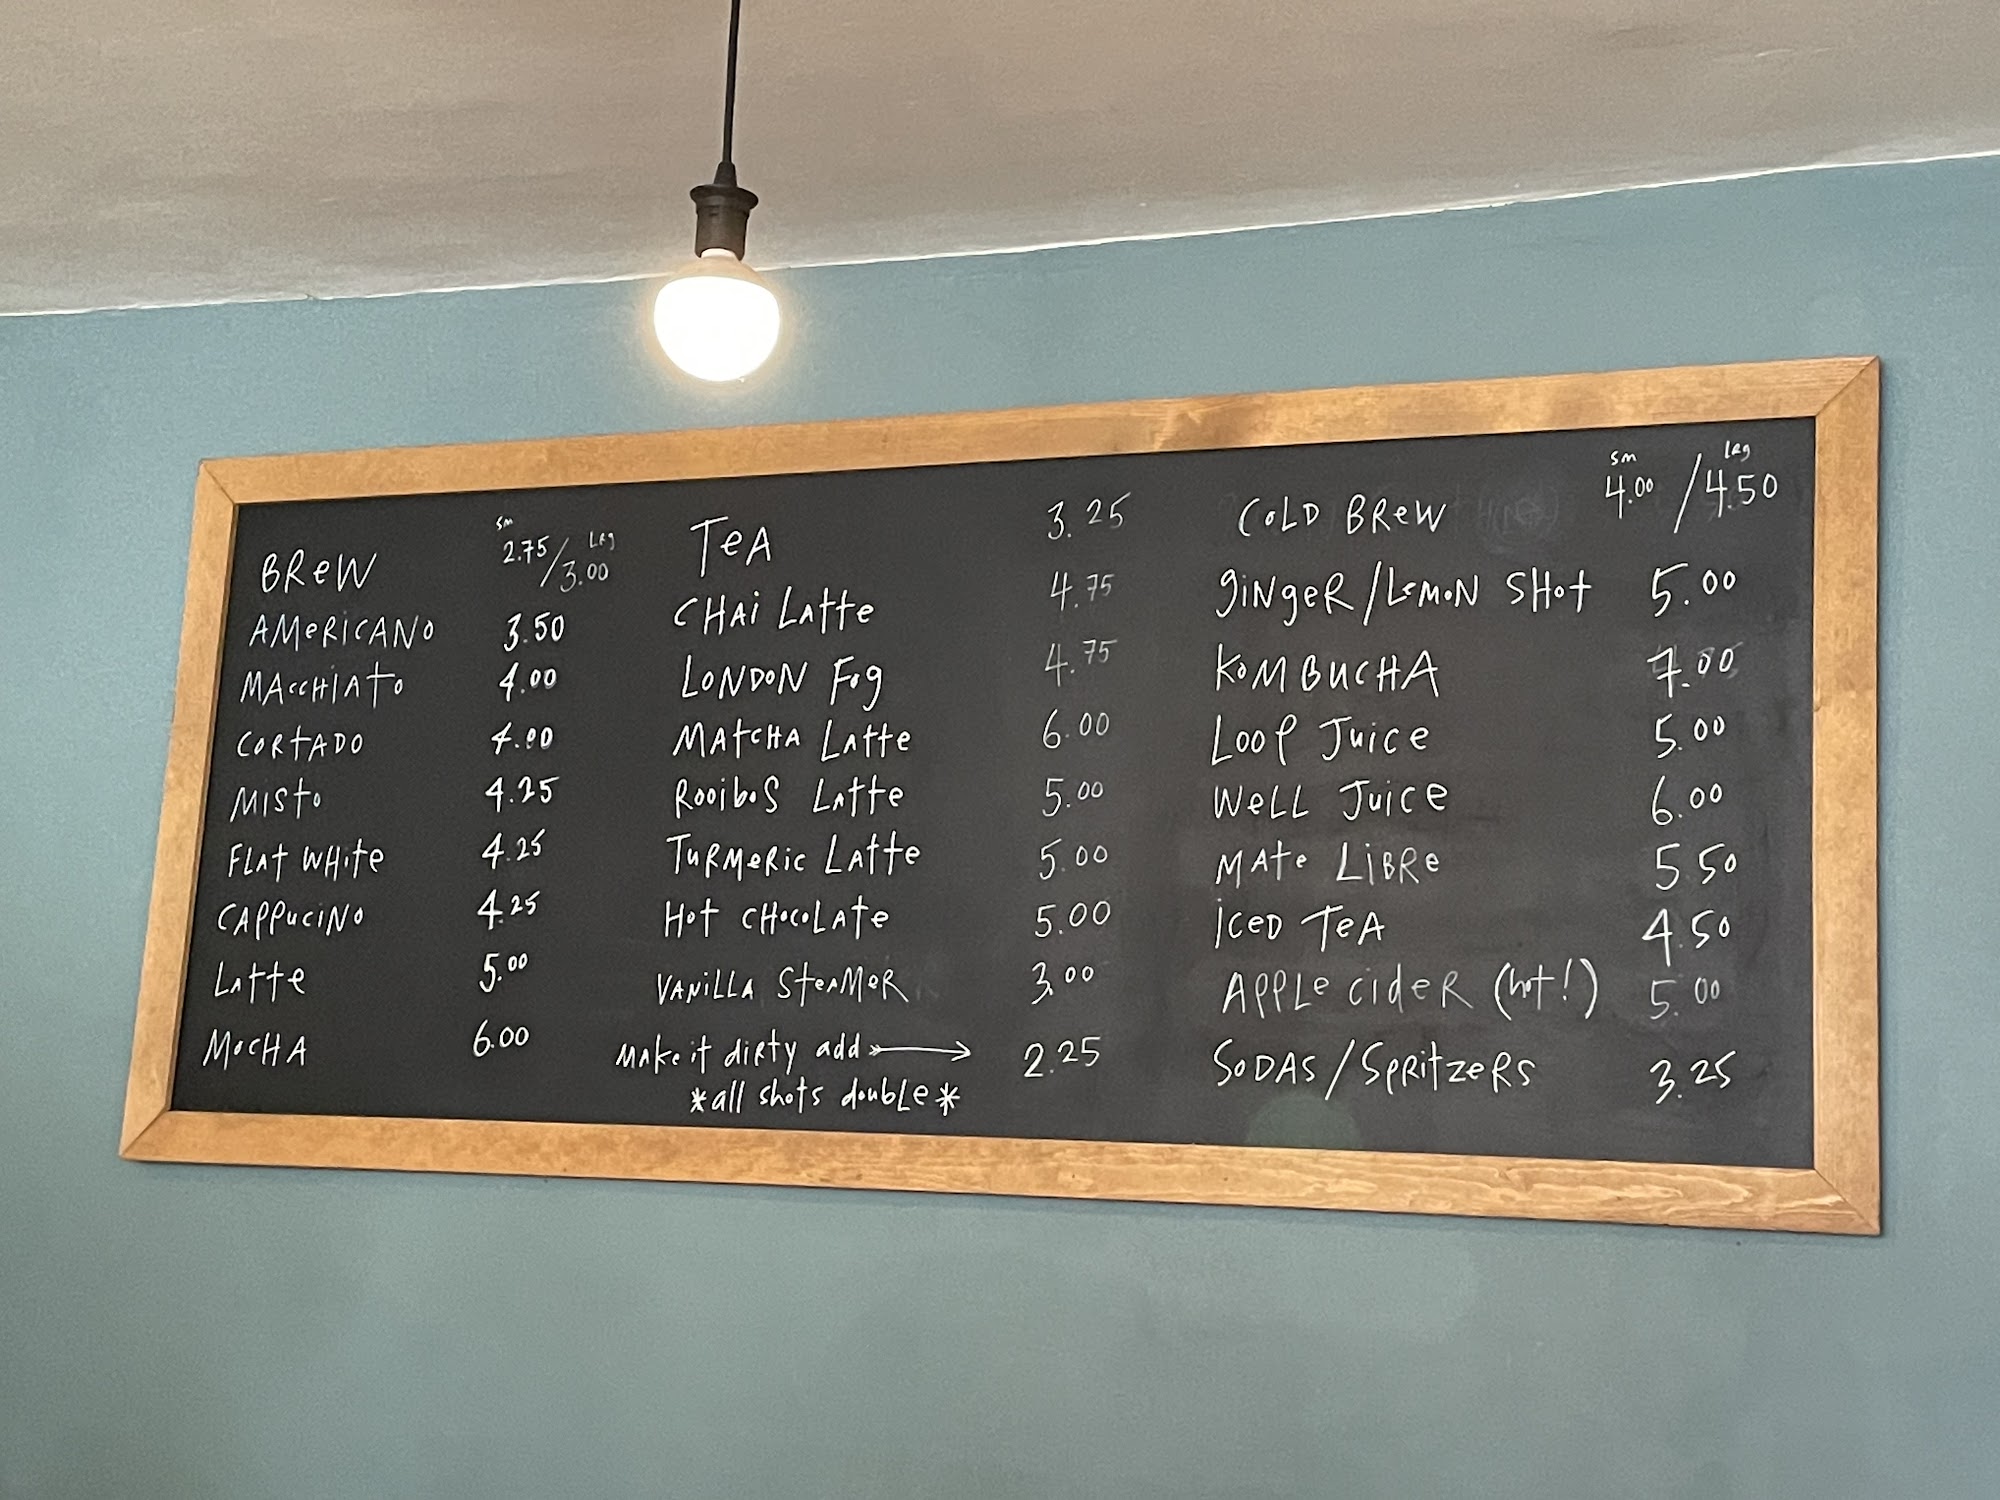 BREW sm 2.75 / Lrg 3.00
AMERICANO 3.50
MACCHIATO 4.00
CORTADO 4.00
MISTO 4.25
FLAT WHITE 4.25
CAPPUCINO 4.25
LATTE 5.00
MOCHA 6.00
TEA 3.25
CHAI LATTE 4.75
LONDON FOG 4.75
MATCHA LATTE 6.00
ROOIBOS LATTE 5.00
TURMERIC LATTE 5.00
HOT CHOCOLATE 5.00
VANILLA STEAMER 3.00
make it dirty add → 2.25
*all shots double*
COLD BREW sm 4.00 / Lrg 4.50
GINGER/LEMON SHOT 5.00
KOMBUCHA 7.00
LOOP JUICE 5.00
WELL JUICE 6.00
MATE LIBRE 5.50
ICED TEA 4.50
APPLE CIDER (hot!) 5.00
SODAS/SPRITZERS 3.25